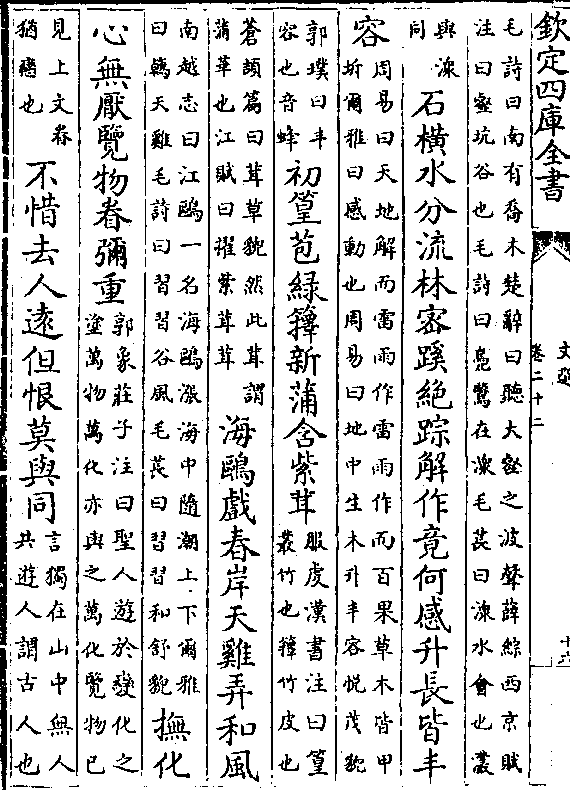 欽定四庫全書
文選
卷二十二
毛詩曰南有喬木楚辭曰聽大壑之波聲薛綜西京賦
注曰壑坑谷也毛詩曰鳧鷖在潨毛萇曰潨水會也叢
與潨
同
石橫水分流林密蹊絶踪解作竟何感升長皆丰
容
周易曰天地解而雷雨作雷雨作而百果草木皆甲
坼爾雅曰感動也周易曰地中生木升丰容悦茂貌
郭璞曰丰
容也音蜂
初篁苞緑籜新蒲含紫茸
服虔漢書注曰篁
叢竹也籜竹皮也
蒼頡篇曰茸草貌然此茸謂
蒲華也江賦曰擢紫茸茸
海鷗戲春岸天雞弄和風
南越志曰江鷗一名海鷗漲海中隨潮上下爾雅
曰鶾天雞毛詩曰習習谷風毛萇曰習習和舒貌
撫化
心無厭覽物眷彌重
郭象莊子注曰聖人遊於變化之
塗萬物萬化亦與之萬化覽物已
見上文眷
猶戀也
不惜去人遠但恨莫與同
言獨在山中無人
共遊人謂古人也